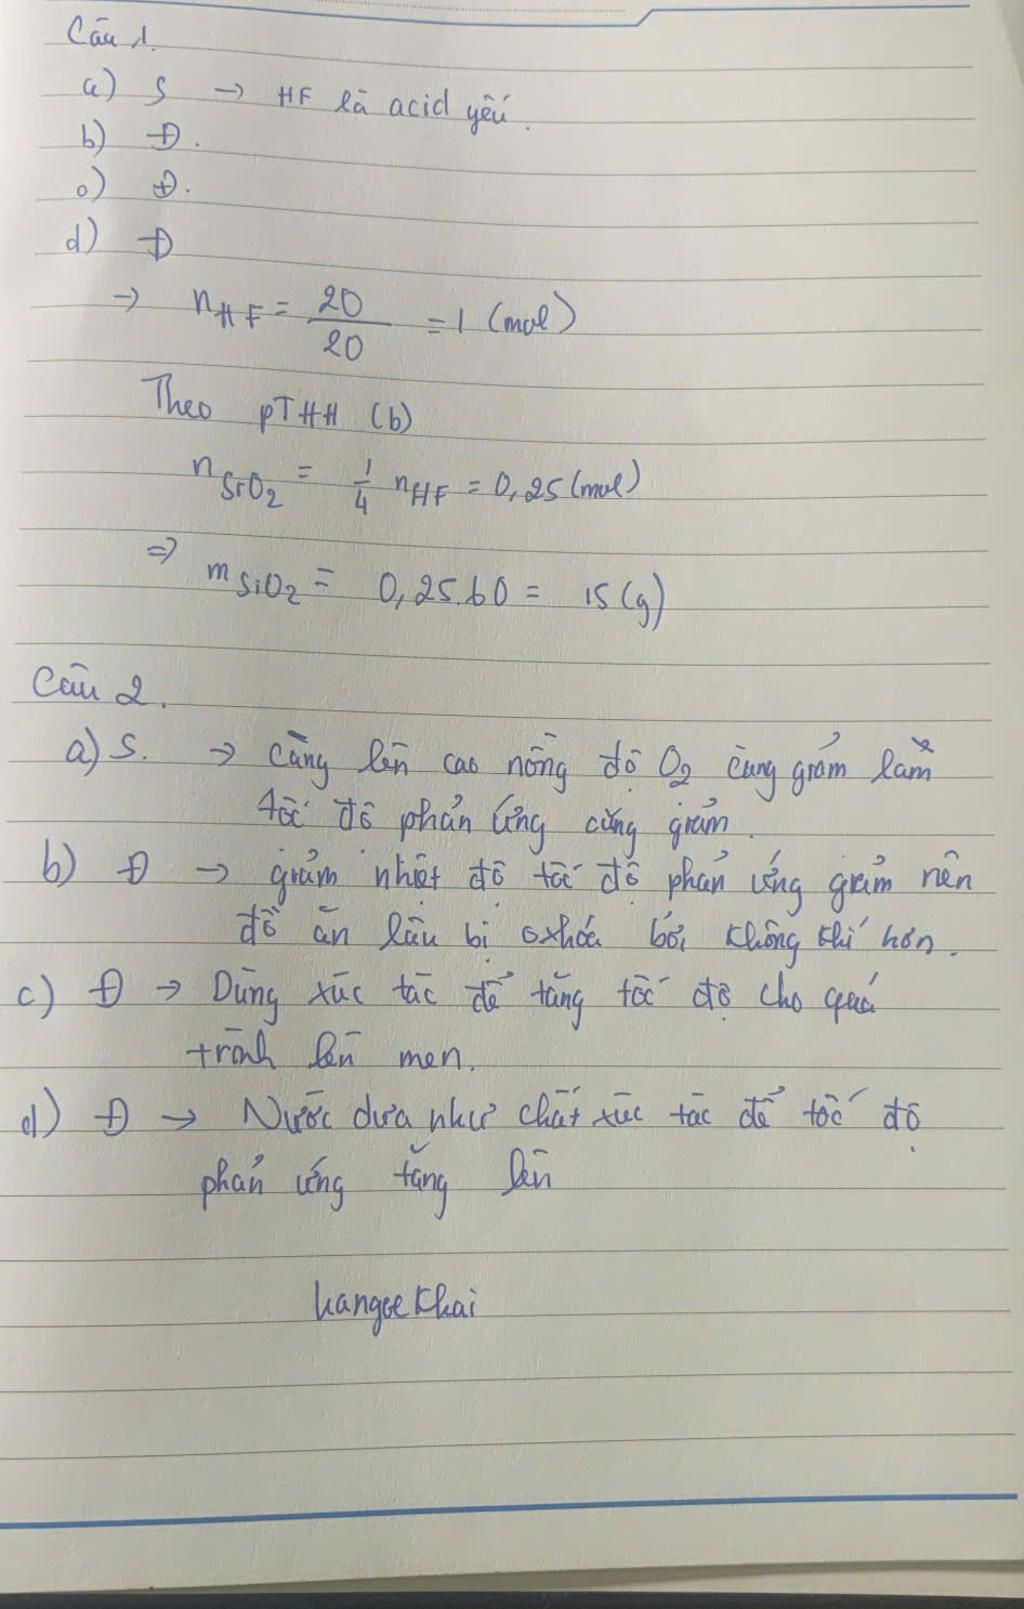 Câu 1.
a) S → HF là acid yếu.
b) Đ.
c) Đ.
d) Đ
→ nHF = 20/20 = 1 (mol)
Theo PTHH (b)
nSiO2 = 1/4 nHF = 0,25 (mol)
⇒ mSiO2 = 0,25.60 = 15 (g)
Câu 2.
a) S. → Càng lên cao nồng độ O2 càng giảm làm
tốc độ phản ứng cũng giảm.
b) Đ → giảm nhiệt độ tốc độ phản ứng giảm nên
đồ ăn lâu bị oxh hóa bởi không khí hơn.
c) Đ → Dùng xúc tác để tăng tốc độ cho quá
trình lên men.
d) Đ → Nước dưa như chất xúc tác để tốc độ
phản ứng tăng lên